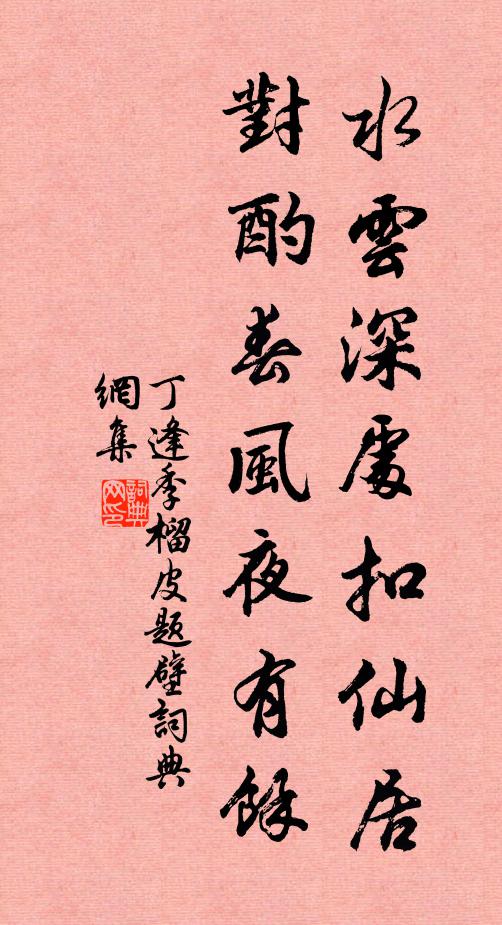 水雲深處扣仙居
對酌春風夜有餘
丁逢季榴皮題壁詞典
網集
詞典
網印